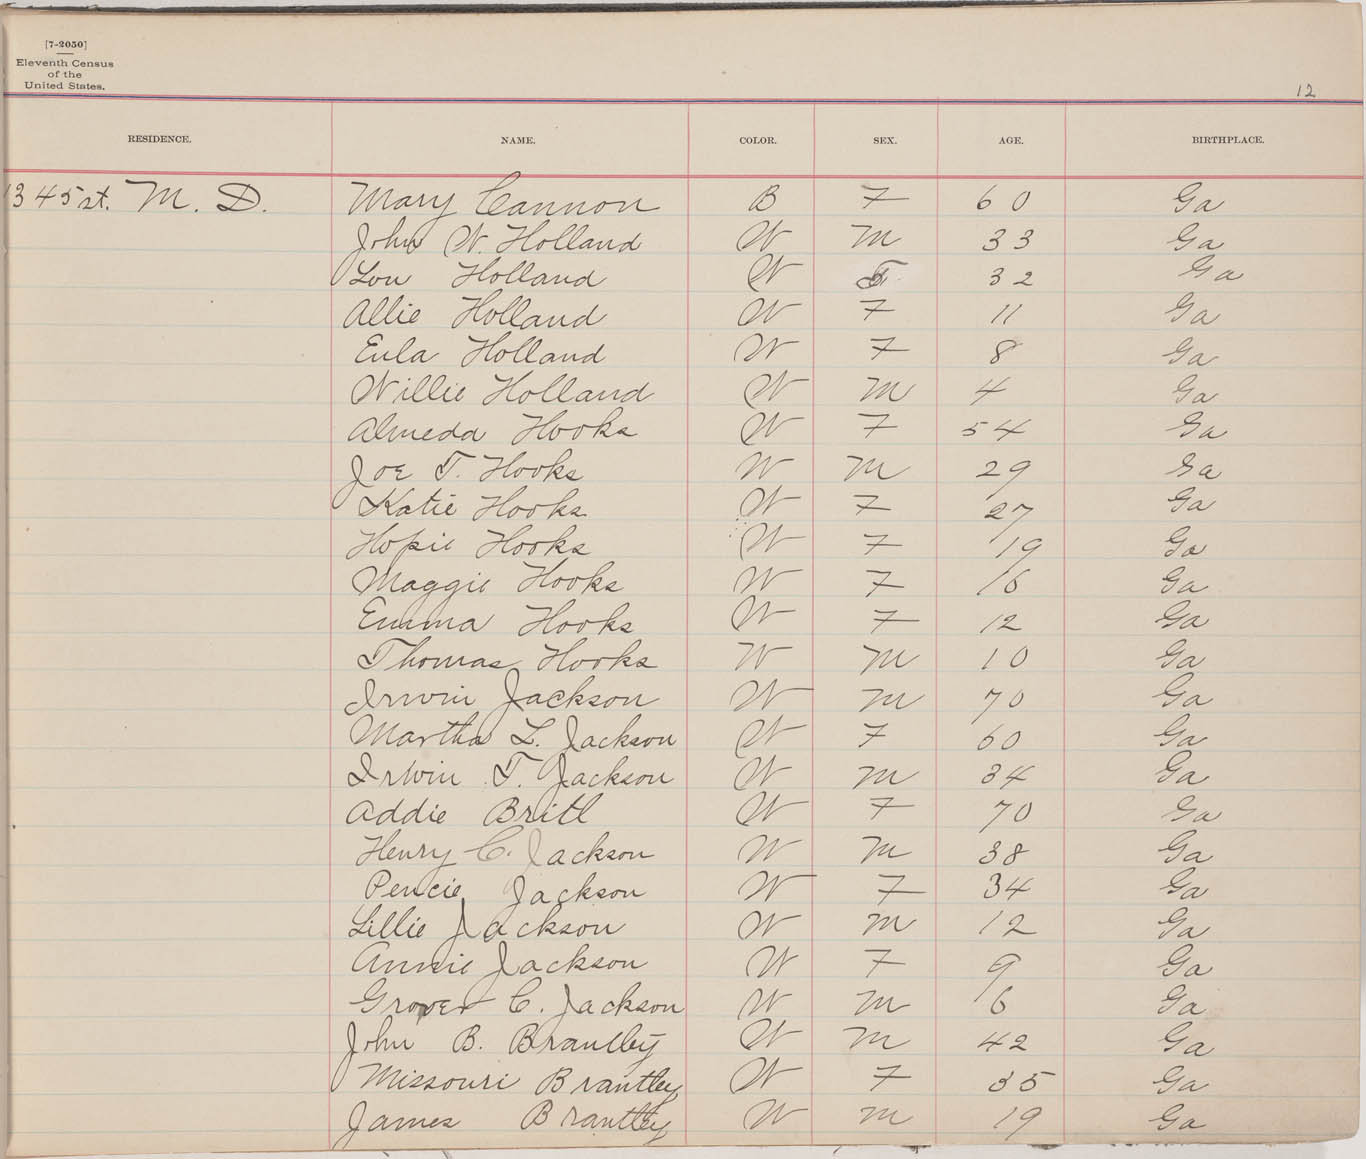 [7-2050]
Eleventh Census
of the
United States.
12
RESIDENCE. NAME. COLOR. SEX. AGE. BIRTHPLACE.
1345st. M. D. Mary Cannon B F 60 Ga
John W. Holland W M 33 Ga
Lou Holland W F 32 Ga
Allie Holland W F 11 Ga
Eula Holland W F 8 Ga
Willie Holland W M 4 Ga
Almeda Hooks W F 54 Ga
Joe T. Hooks W M 29 Ga
Katie Hooks W F 27 Ga
Hopie Hooks W F 19 Ga
Maggie Hooks W F 16 Ga
Emma Hooks W F 12 Ga
Thomas Hooks W M 10 Ga
Irwin Jackson W M 70 Ga
Martha L. Jackson W F 60 Ga
Irwin T. Jackson W M 34 Ga
Addie Britt W F 70 Ga
Henry C. Jackson W M 38 Ga
Pencie Jackson W F 34 Ga
Lillie Jackson W M 12 Ga
Annie Jackson W F 9 Ga
Grover C. Jackson W M 6 Ga
John B. Brantley W M 42 Ga
Missouri Brantley W F 35 Ga
James Brantley W M 19 Ga